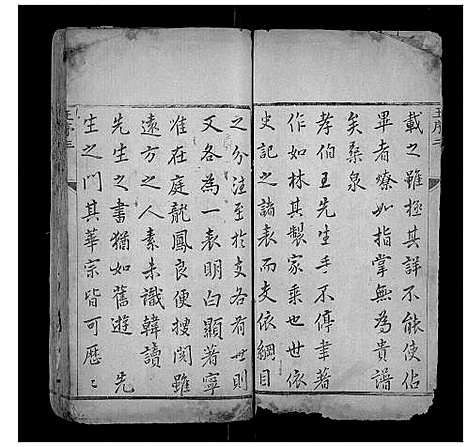 載之雖極其詳不能使佔
畢者瞭如指掌無為貴譜
矣桑泉
孝伯王先生手不停筆著
作如林其製家乘也世依
史記之諸表而支依綱目
之分注至於支各有世則
又各為一表明白顯著寧
惟在庭龍鳳良便搜閱雖
遠方之人素未識韓讀
先生之書猶如舊遊 先
生之門其華宗皆可歷〻
王序二
王序三